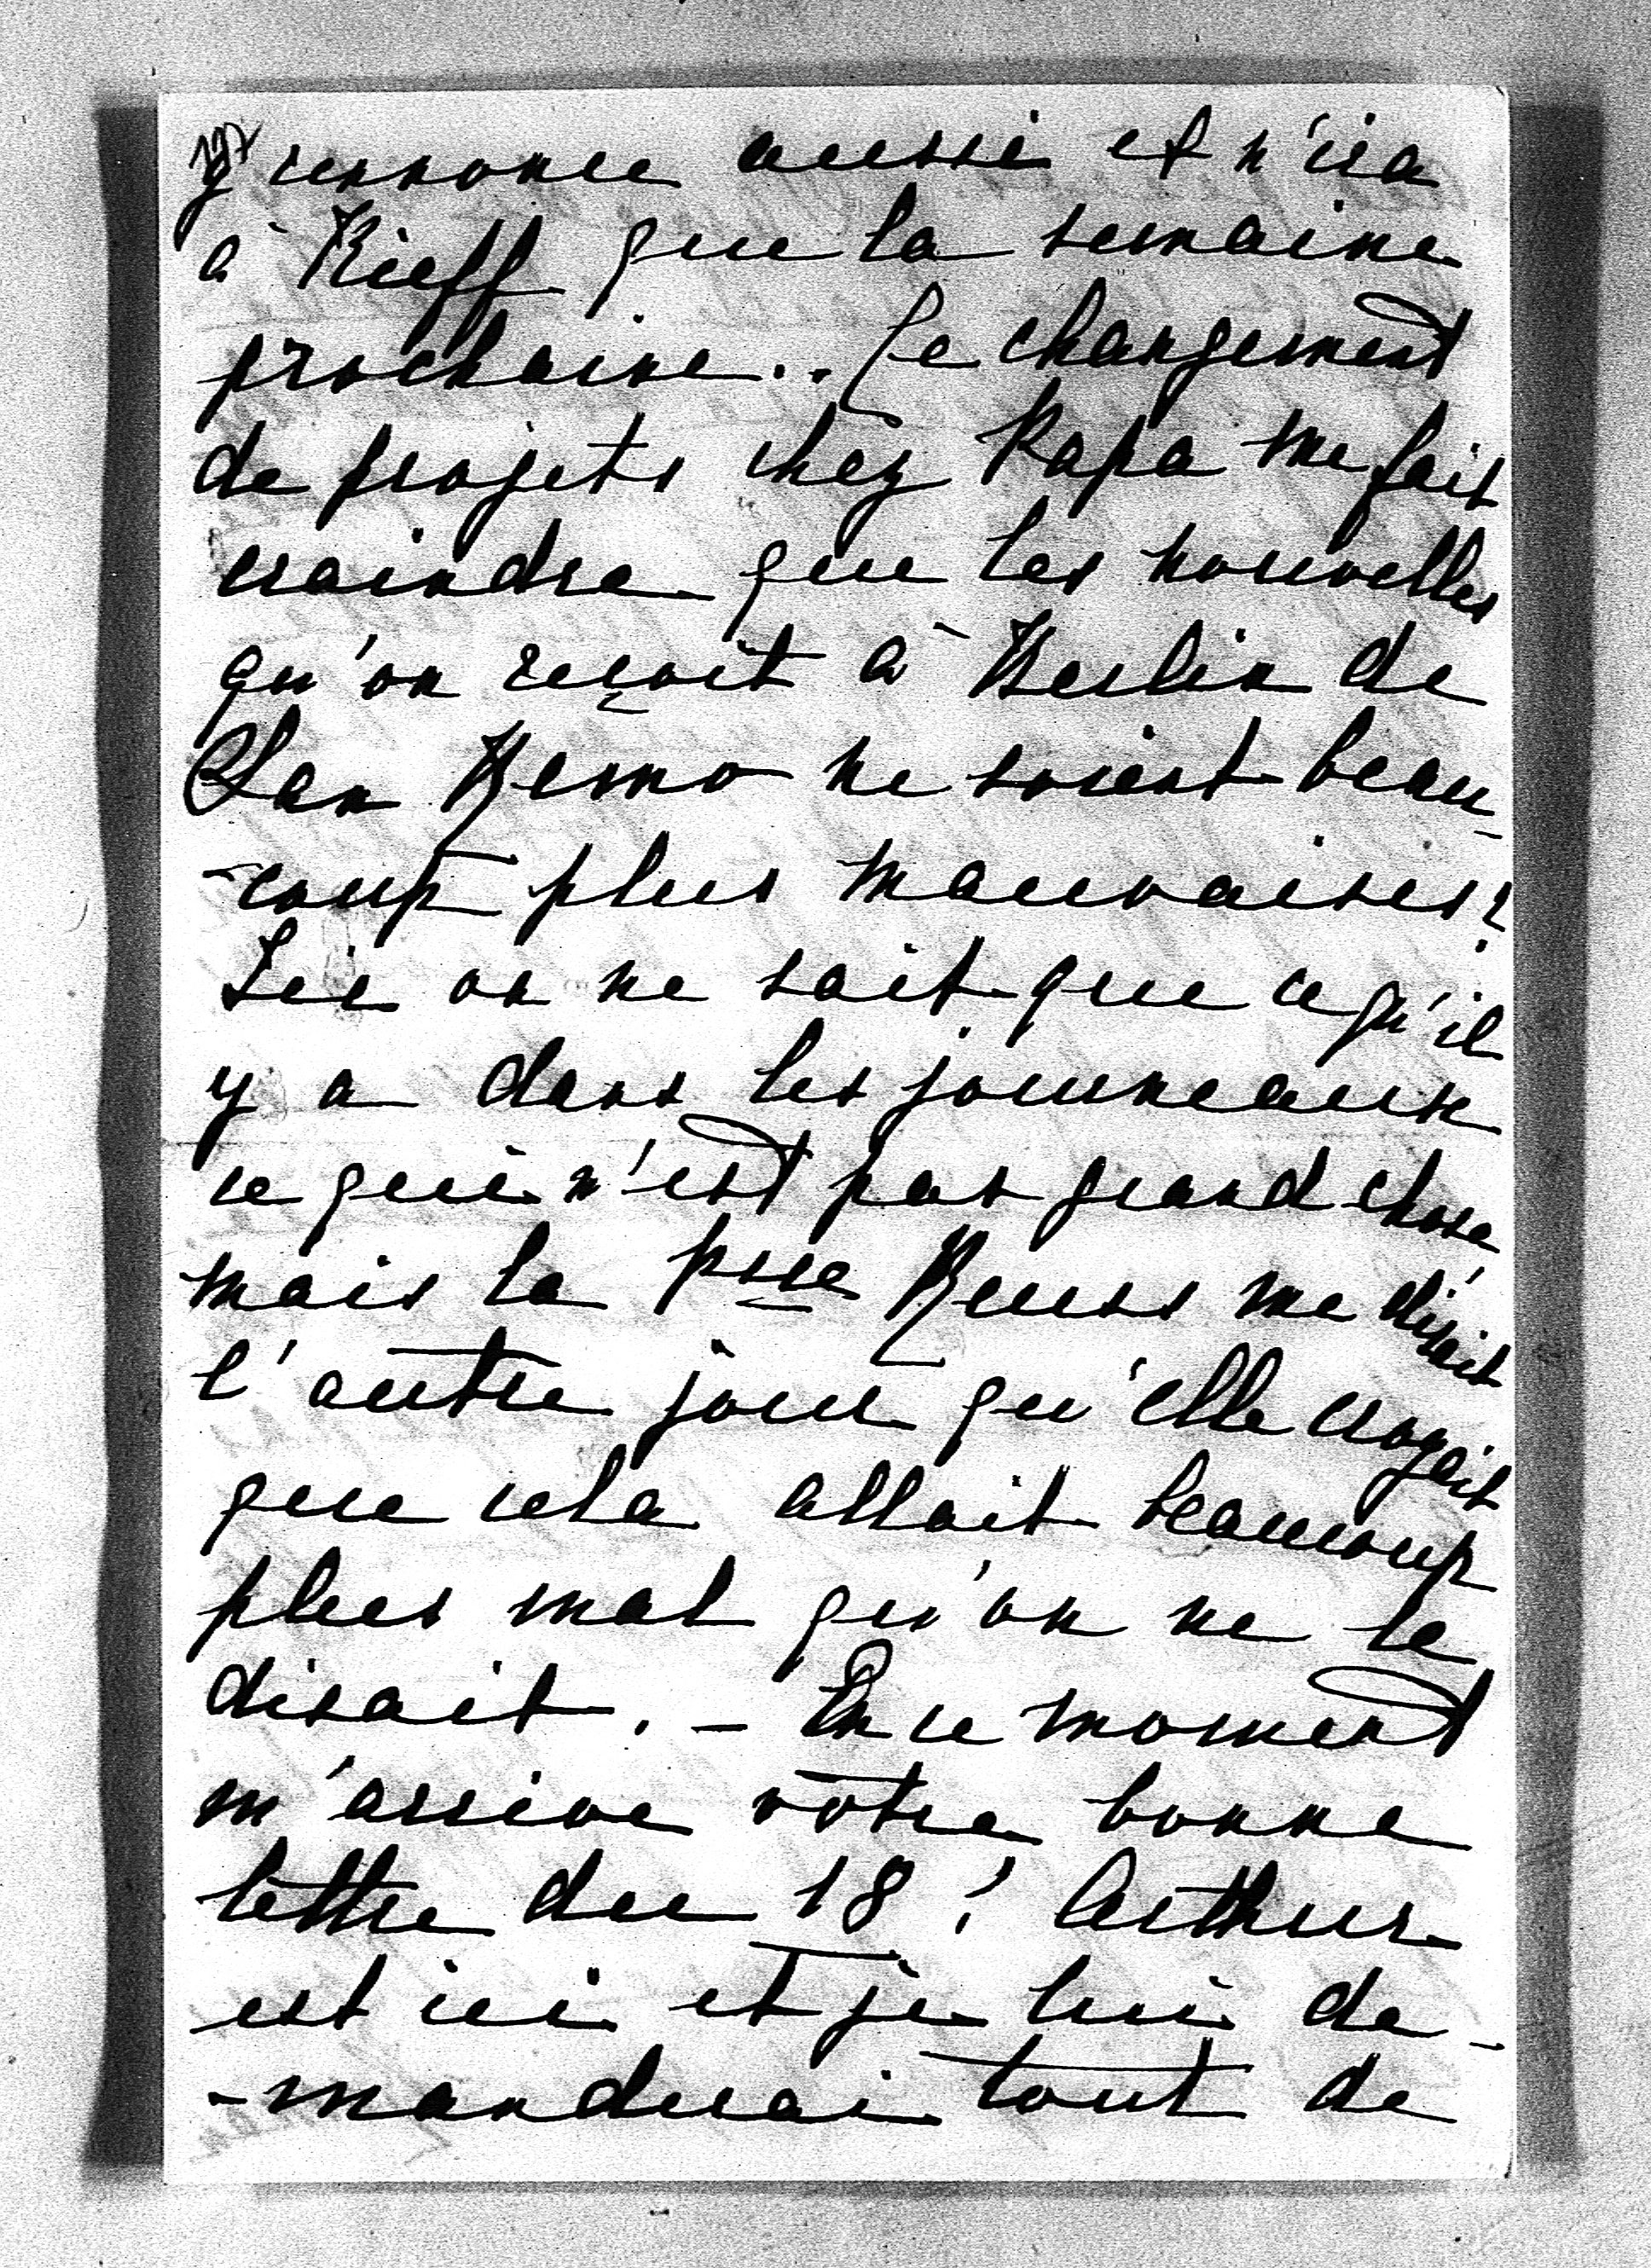 y renonce aussi et n'ira
à Kieff que la semaine
prochaine.. Ce changement
de projets chez Papa me fait
craindre que les nouvelles
qu'on reçoit à Berlin de
San Remo ne soient beau-
-coup plus mauvaises?
Ici on ne sait que ce qu'il
y a dans les journeaux
ce qui n'est pas grand chose
mais la psse Reuss me disait
l'autre jour qu'elle croyait
que cela allait beaucoup
plus mal qu'on ne le
disait. – En ce moment
m'arrive votre bonne
lettre du 18! Arthur
est ici et je lui de-
-manderai tout de